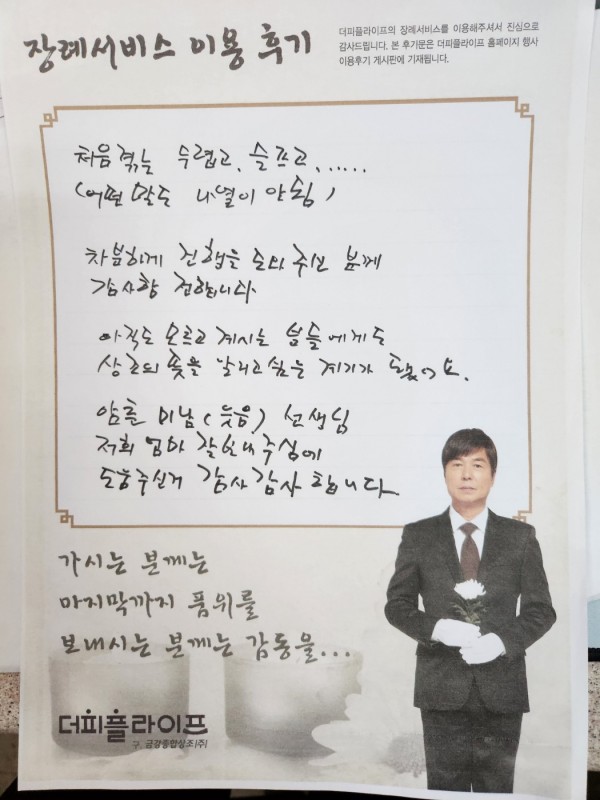 장례서비스 이용 후기
더피플라이프의 장례서비스를 이용해주셔서 진심으로
감사드립니다. 본 후기문은 더피플라이프 홈페이지 행사
이용후기 게시판에 기재됩니다.
처음 겪는 두렵고, 슬프고, .....
(어떤 말도 나열이 안됨)
차분하게 진행을 도와주신 분께
감사함 전합니다
아직도 모르고 계시는 분들에게도
상조의 뜻을 알리고 싶은 계기가 됐어요.
미남(웃음) 선생님
저희 엄마 잘 보내주심에
감사감사 합니다
가시는 분께는
마지막까지 품위를
보내시는 분께는 감동을...
더피플라이프
구. 금강종합상조(주)